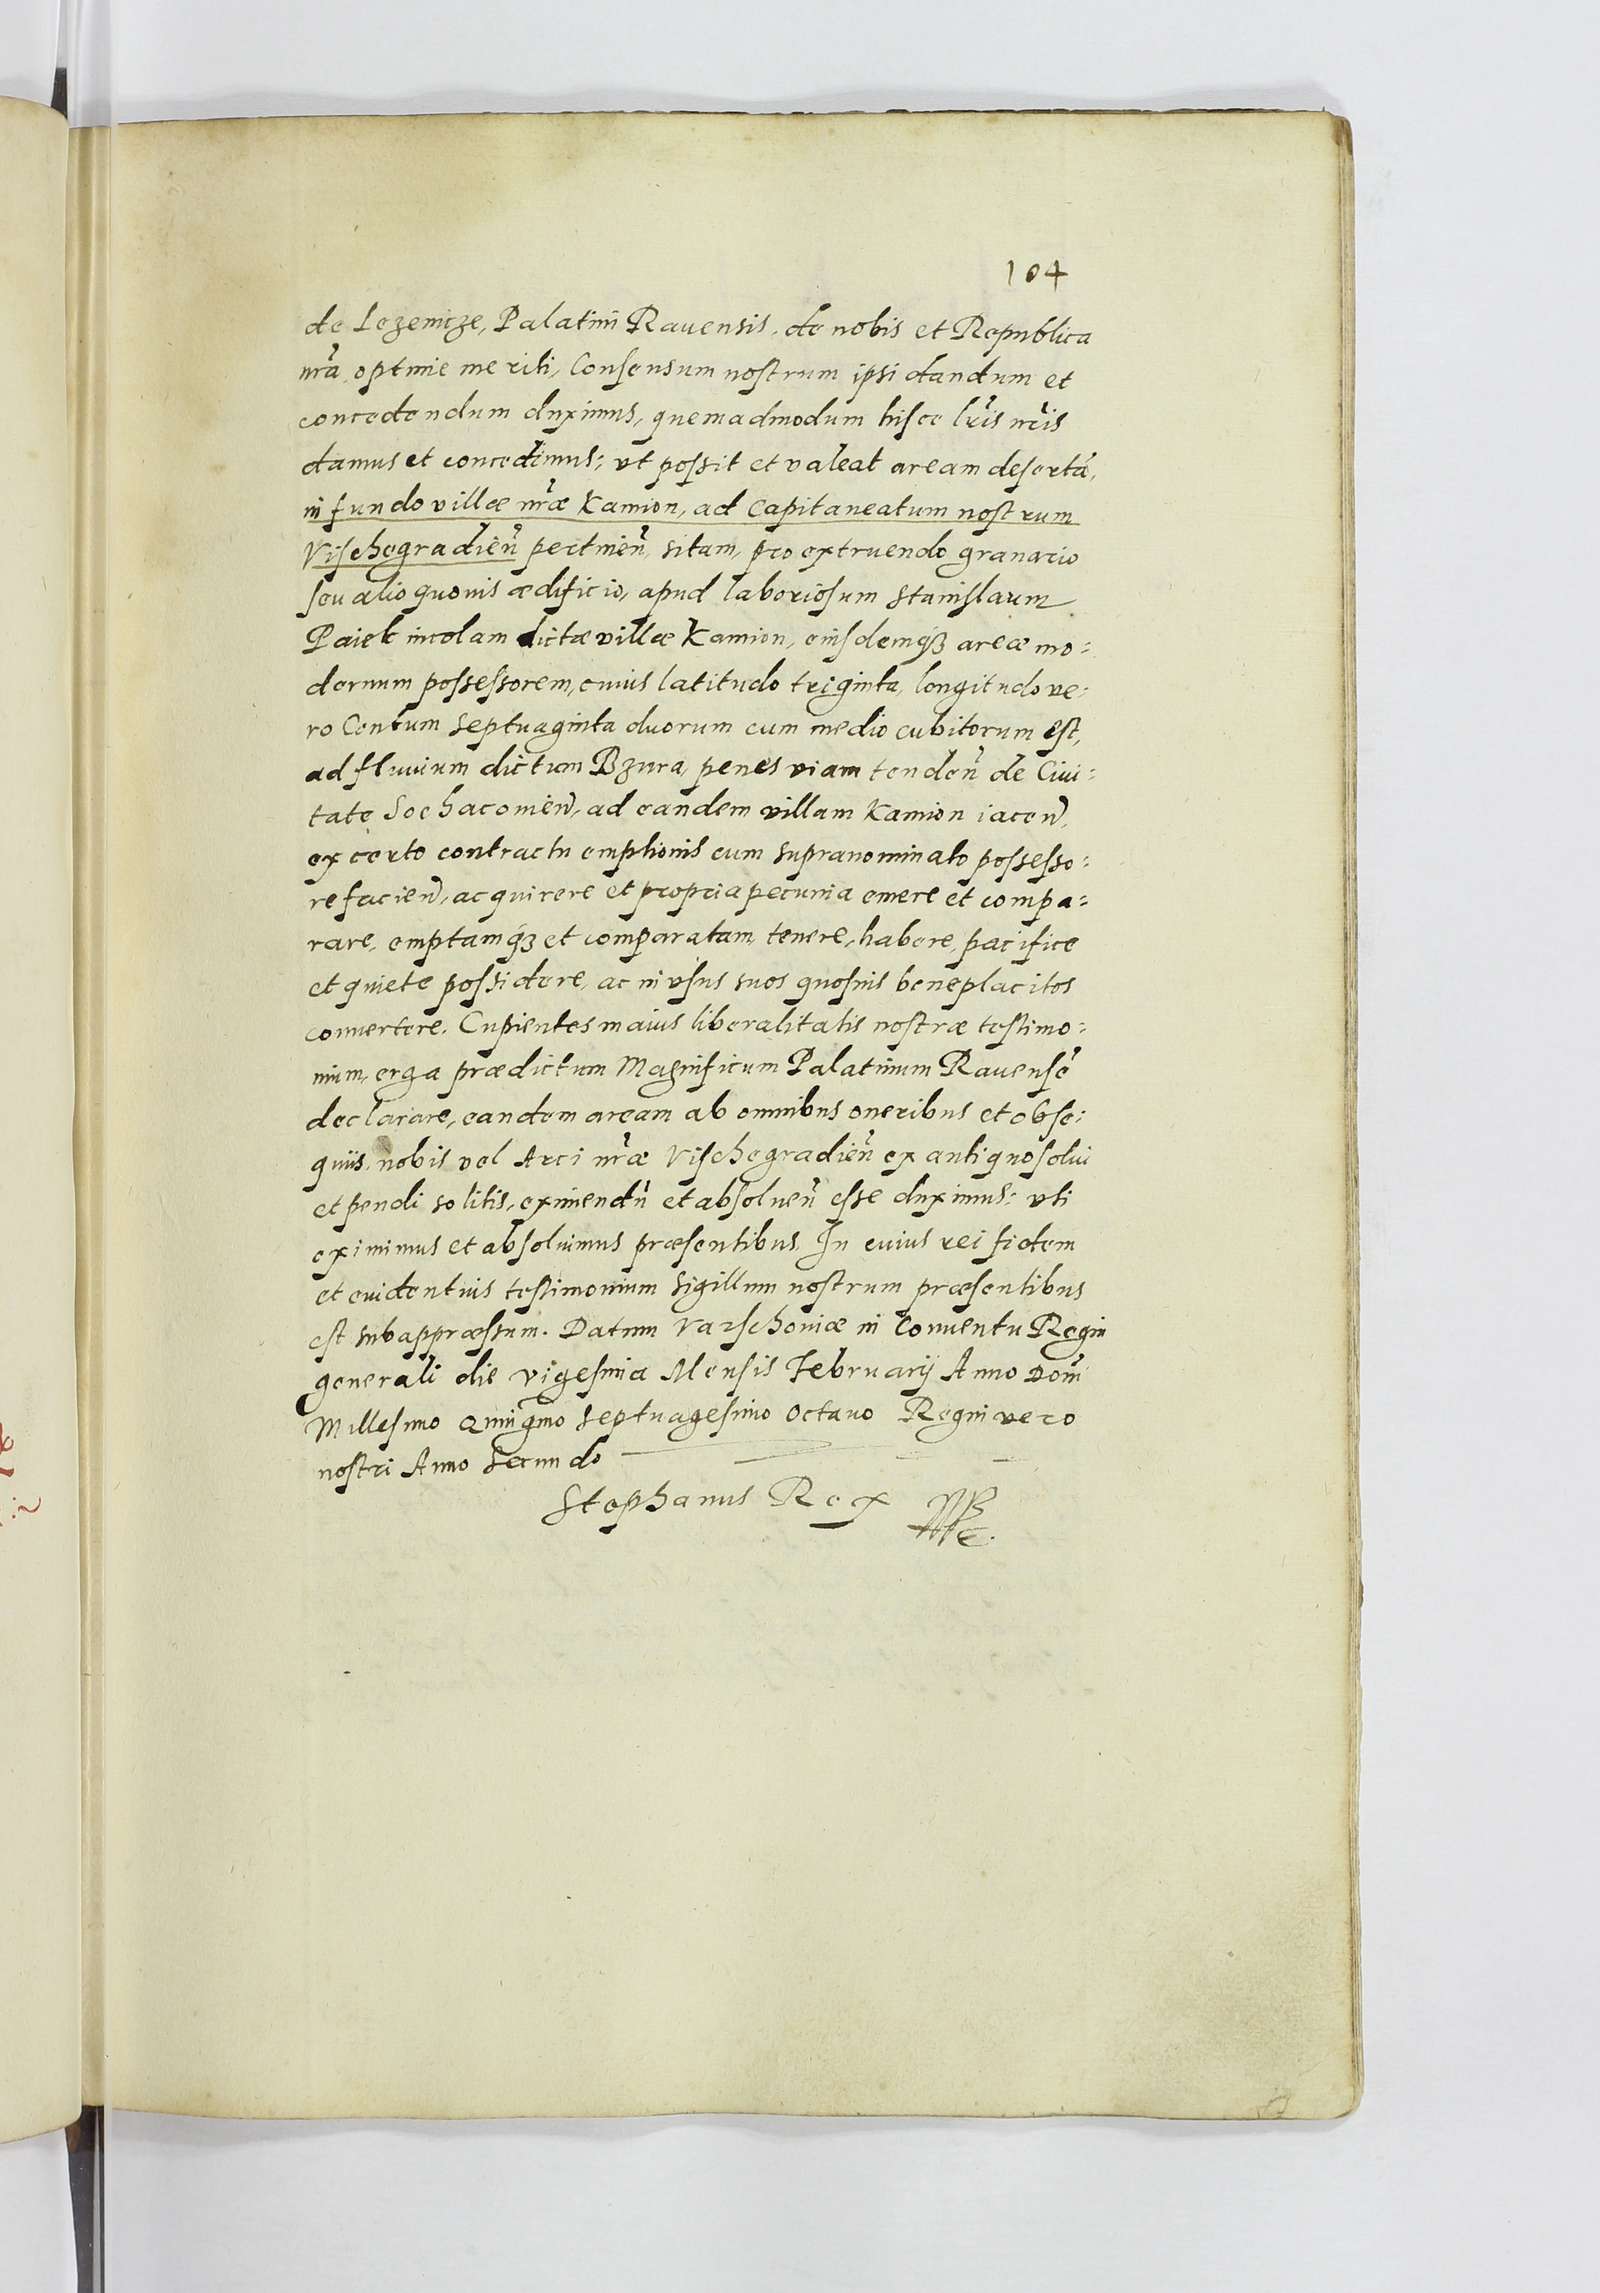 104
de Lezenicze, Palatini Rauensis, de nobis et Republica
nr̃a optime meriti, Consensum nostrum ipsi dandum et
concedendum duximus, quemadmodum hisce lr̃is nr̃is
damus et concedimus: vt possit et valeat aream desertã,
in fundo villæ nr̃æ Kamion, ad Capitaneatum nostrum
Vischegradień pertineñ, sitam, pro extruendo granario
seu alio quouis ædificio, apud laboriosum Stanislaum
Paiek incolam dictæ villæ Kamion, eiusdemq́ꝫ areæ mo:
dernum possessorem, cuius latitudo triginta, longitudo ve:
ro Centum septuaginta duorum cum medio cubitorum est,
ad fluuium dictum Bzura, penes viam tendeñ de Ciui:
tate Sochacouieñ, ad eandem villam Kamion iaceñ,
ex certo contractu emptionis cum supranominato possesso:
re facień, acquirere et propria pecunia emere et compa:
rare, emptamq́ꝫ et comparatam, tenere, habere, pacifice
et quiete possidere, ac in vsus suos quosuis beneplacitos
conuertere. Cupientes maius liberalitatis nostræ testimo:
nium, erga prædictum Magnificum Palatinum Rauensẽ
declarare, eandem aream ab omnibus oneribus et obse:
quiis, nobis vel Arci nr̃æ Vischegradień ex antiquo solui
et pendi solitis, eximendũ et absolueñ esse duximus: vti
eximimus et absoluimus præsentibus. In cuius rei fidem
et euidentius testimonium sigillum nostrum præsentibus
est subappræssum. Datum Varschouiæ in Conuentu Regni
generali die vigesima Mensis Februarij Anno Domĩ
Millesimo Quingm̃o septuagesimo Octauo Regni vero
nostri Anno Secundo
Stephanus Rex